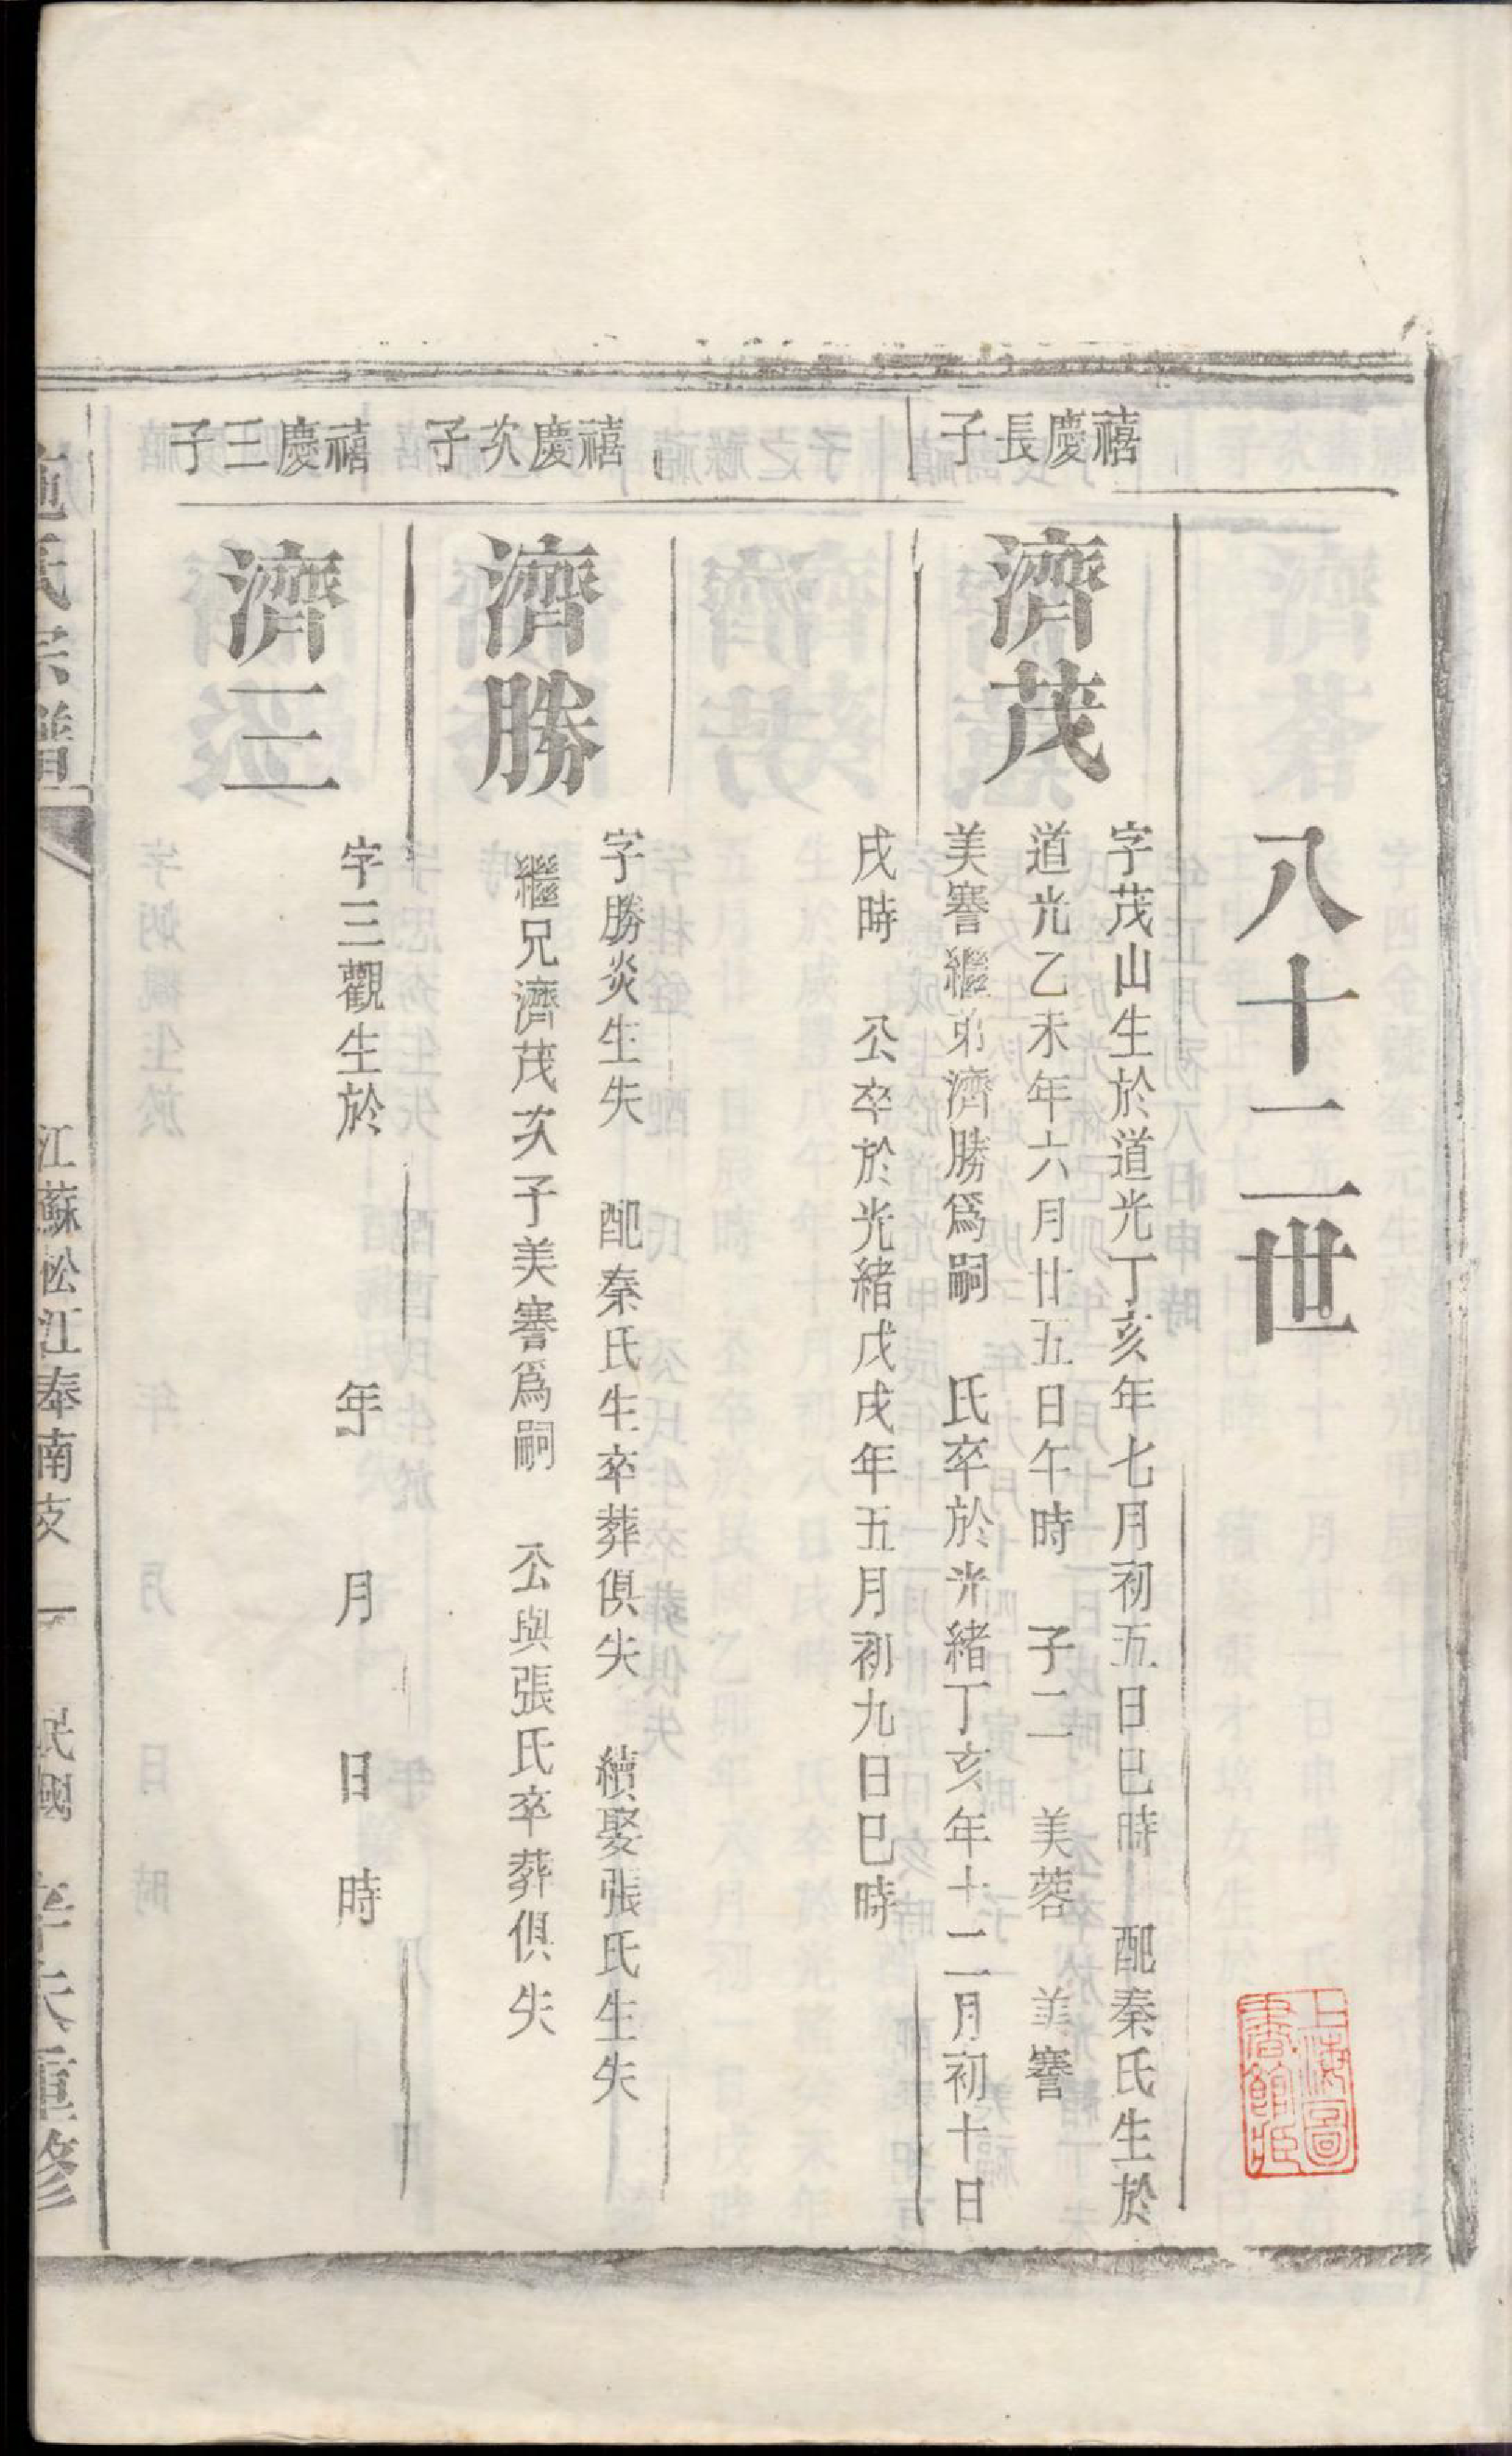 八十二世
禧慶長子
濟茂
字茂山生於道光丁亥年七月初五日巳時 配秦氏生於
道光乙未年六月廿五日午時 子二 美蓉 美謇
美謇繼弟濟勝爲嗣 氏卒於光緒丁亥年十二月初十日
戌時 公卒於光緒戊戌年五月初九日巳時
禧慶次子
濟勝
字勝炎生失 配秦氏生卒葬俱失 續娶張氏生失
繼兄濟茂次子美謇爲嗣 公與張氏卒葬俱失
禧慶三子
濟三
字三觀生於 年 月 日 時
施氏宗譜
江蘇松江奉南支 一 民國 重修
上海圖書館藏